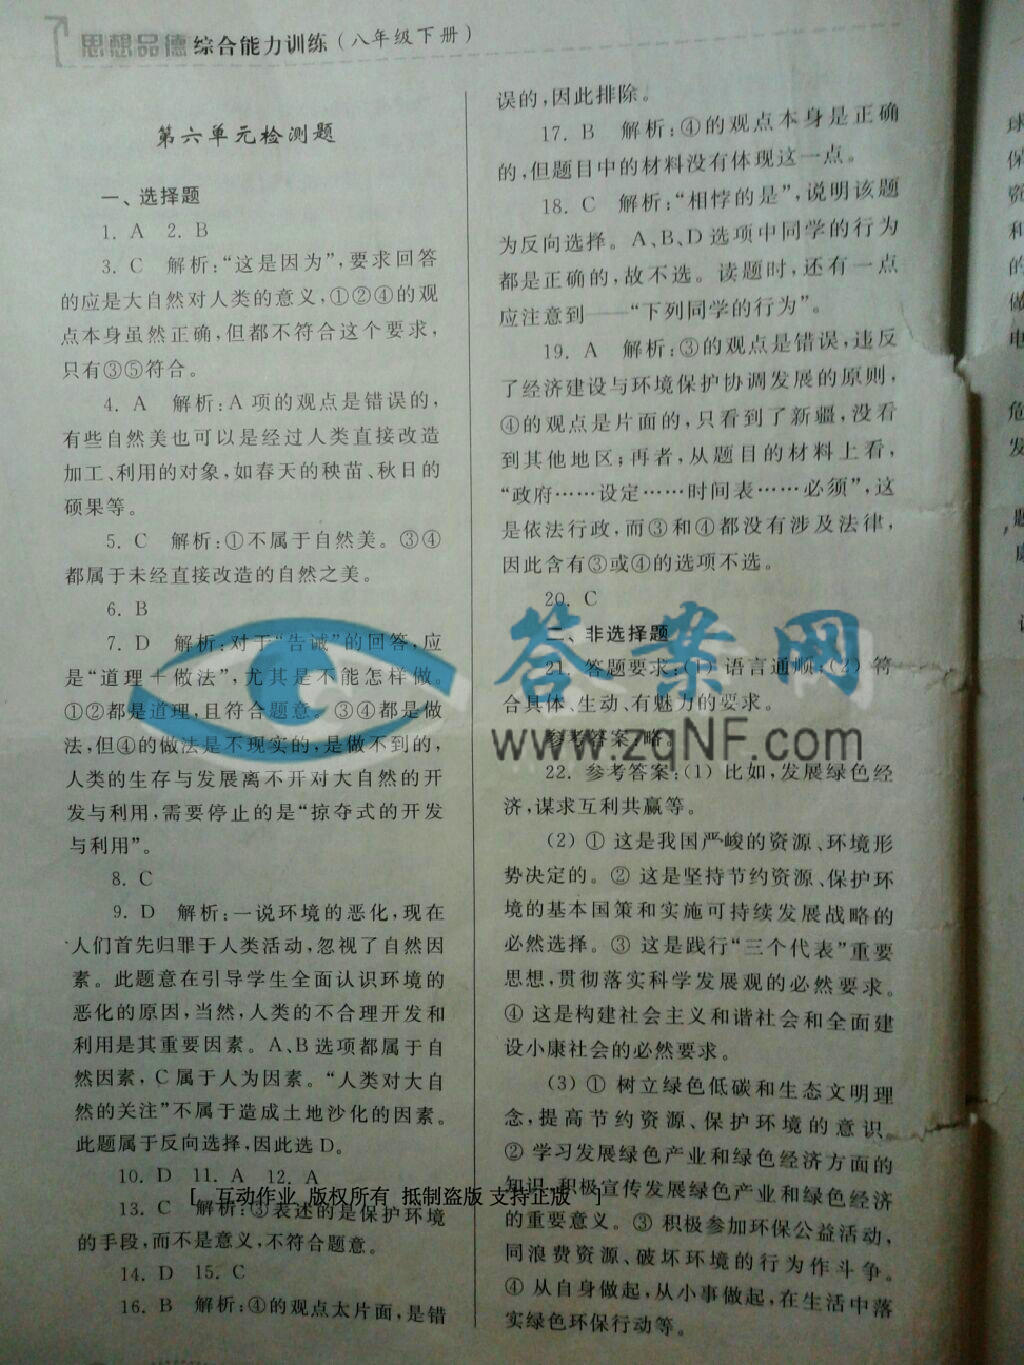 思想品德 综合能力训练(八年级下册)
第六单元检测题
一、选择题
1. A 2. B
3. C 解析:“这是因为”,要求回答
的应是大自然对人类的意义,①②④的观
点本身虽然正确,但都不符合这个要求,
只有③⑤符合。
4. A 解析:A项的观点是错误的,
有些自然美也可以是经过人类直接改造
加工、利用的对象,如春天的秧苗、秋日的
硕果等。
5. C 解析:①不属于自然美。③④
都属于未经直接改造的自然之美。
6. B
7. D 解析:对于“告诫”的回答,应
是“道理+做法”,尤其是不能怎样做。
①②都是道理,且符合题意。③④都是做
法,但④的做法是不现实的,是做不到的,
人类的生存与发展离不开对大自然的开
发与利用,需要停止的是“掠夺式的开发
与利用”。
8. C
9. D 解析:一说环境的恶化,现在
人们首先归罪于人类活动,忽视了自然因
素。此题意在引导学生全面认识环境的
恶化的原因,当然,人类的不合理开发和
利用是其重要因素。A、B选项都属于自
然因素,C属于人为因素。“人类对大自
然的关注”不属于造成土地沙化的因素。
此题属于反向选择,因此选D。
10. D 11. A 12. A
13. C 解析:③表述的是保护环境
的手段,而不是意义,不符合题意。
14. D 15. C
16. B 解析:④的观点太片面,是错
误的,因此排除。
17. B 解析:④的观点本身是正确
的,但题目中的材料没有体现这一点。
18. C 解析:“相悖的是”,说明该题
为反向选择。A、B、D选项中同学的行为
都是正确的,故不选。读题时,还有一点
应注意到——“下列同学的行为”。
19. A 解析:③的观点是错误,违反
了经济建设与环境保护协调发展的原则,
④的观点是片面的,只看到了新疆,没看
到其他地区;再者,从题目的材料上看,
“政府……设定……时间表……必须”,这
是依法行政,而③和④都没有涉及法律,
因此含有③或④的选项不选。
20. C
二、非选择题
21. 答题要求:(1)语言通顺;(2)符
合具体、生动、有魅力的要求。
参考答案:略。
22. 参考答案:(1)比如,发展绿色经
济,谋求互利共赢等。
(2)① 这是我国严峻的资源、环境形
势决定的。② 这是坚持节约资源、保护环
境的基本国策和实施可持续发展战略的
必然选择。③ 这是践行“三个代表”重要
思想,贯彻落实科学发展观的必然要求。
④ 这是构建社会主义和谐社会和全面建
设小康社会的必然要求。
(3)① 树立绿色低碳和生态文明理
念,提高节约资源、保护环境的意识。
② 学习发展绿色产业和绿色经济方面的
知识,积极宣传发展绿色产业和绿色经济
的重要意义。③ 积极参加环保公益活动,
同浪费资源、破坏环境的行为作斗争。
④ 从自身做起,从小事做起,在生活中落
实绿色环保行动等。
答案网
www.zqNF.com
[ 互动作业 版权所有 抵制盗版 支持正版 ]
球
保
资
和
的
做
电
危
发
题